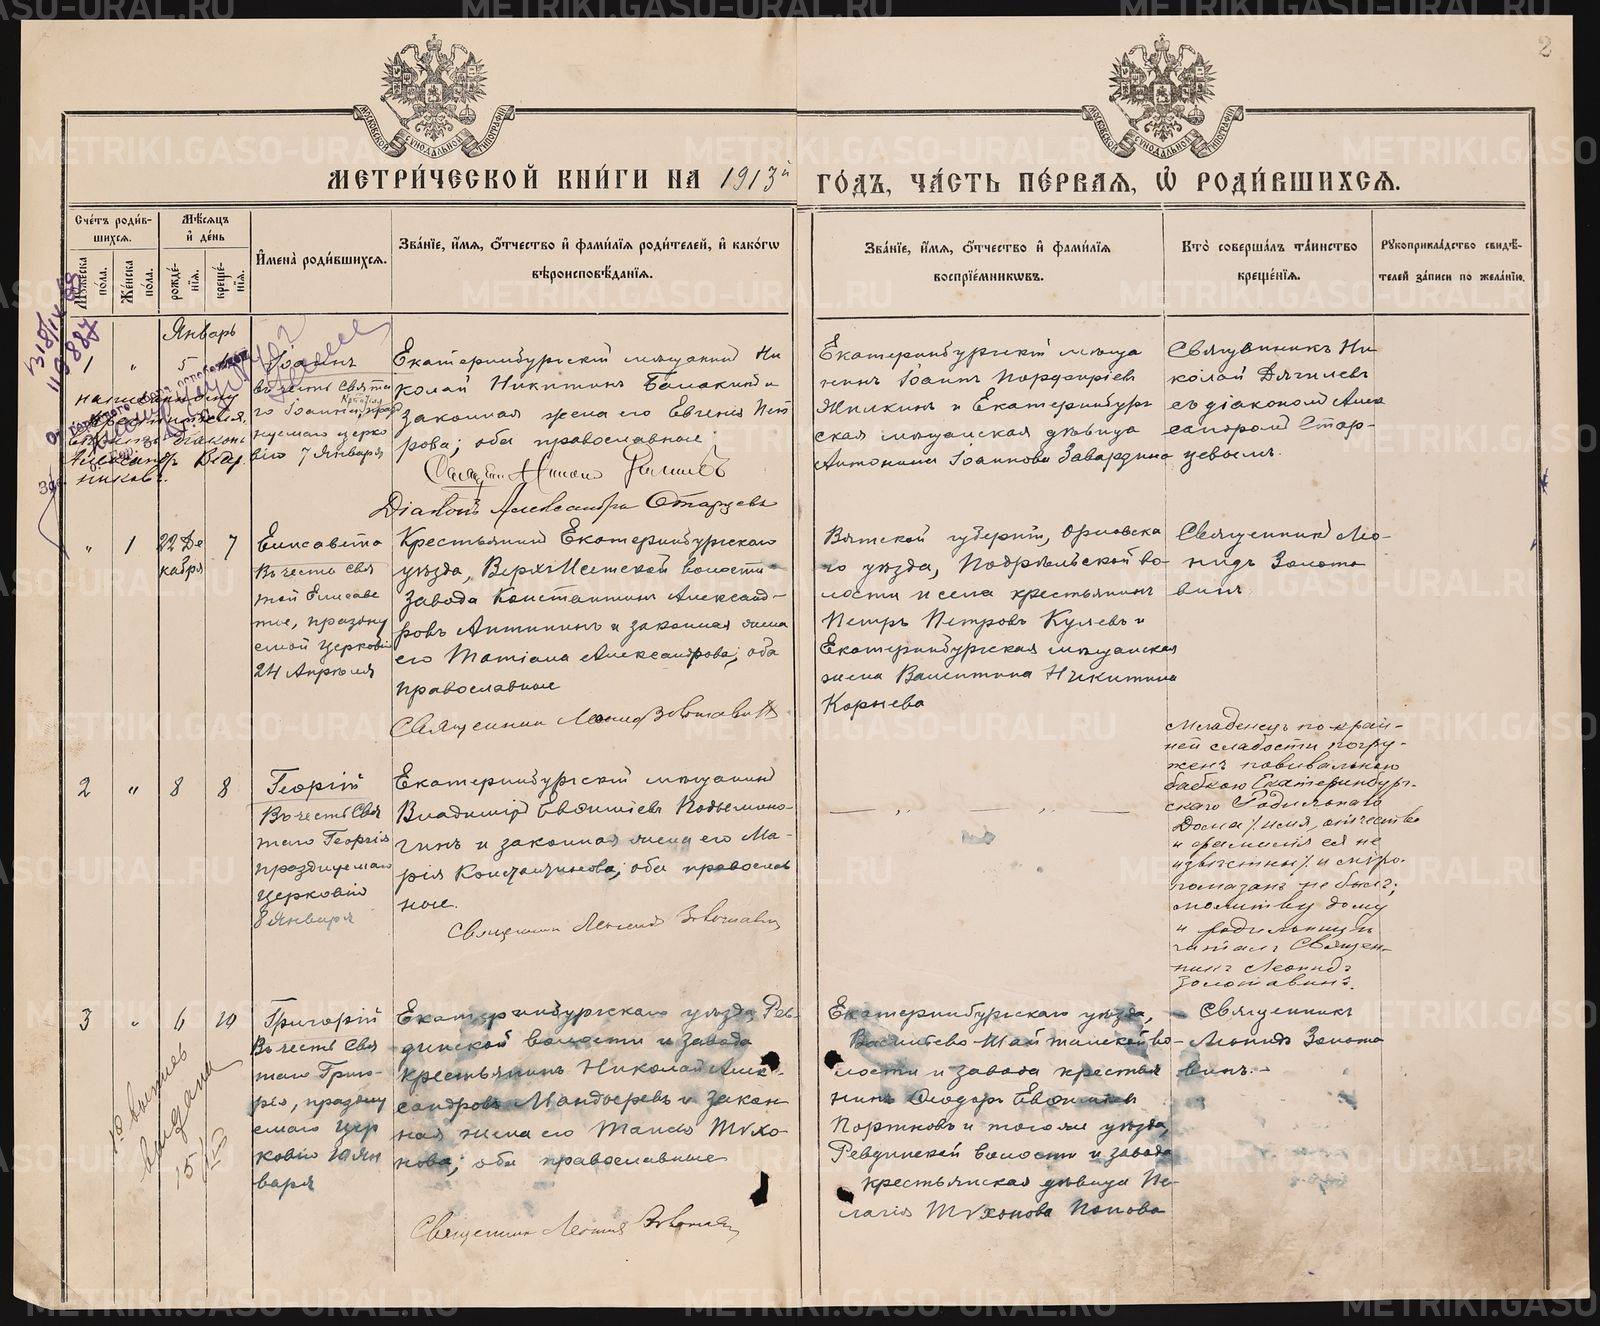 2
МОСКОВСКОЙ СѴНОДАЛЬНОЙ ТИПОГРАФІИ
МОСКОВСКОЙ СѴНОДАЛЬНОЙ ТИПОГРАФІИ
МЕТРИ́ЧЕСКОЙ КНИ́ГИ НА 1913й ГО́ДЪ, ЧА́СТЬ ПЕ́РВАЯ, Ѡ РОДИ́ВШИХСЯ.
Сче́тъ роди́в-
шихся.
Мѣсяцъ
и де́нь
Мꙋжеска
по́ла.
Же́нска
по́ла.
рожде́-
нїя.
креще́-
нїя.
И́мена̀ роди́вшихся.
Зва́нїе, и́мя, ѻ́тчество и фами́лїя роди́телей, и како́гѡ
вѣроисповѣ́данїя.
Зва́нїе, и́мя, ѻ́тчество и фами́лїя
воспрїе́мникѡвъ.
Кто̀ соверша́лъ та́инство
креще́нїя.
Рꙋкоприкла́дство свидѣ́-
телей за́писи по жела́нїю.
Январь
1
"
5
Іоаннъ
въ честь Свята
го Іоанна,
церко
вію 7 Января
Екатеринбургскій мѣщанинъ Ни
колай Никитинъ Балакинъ и
законная жена его Евгенія Пет
рова; оба православные
Діаконъ Александръ Старцевъ
Екатеринбургскій мѣща
нинъ Іоаннъ Порфиріевъ
Жилкинъ и Екатеринбург
ская мѣщанская дѣвица
Антонина Іоаннова
Священникъ Ни
колай Дягилевъ
съ діакономъ Алек
сандромъ Стар-
цевымъ.
"
1
22 Де
кабря
7
Елисавета
Въ честь Свя
той Елисаве
ты, праздну
емой церковію
24 Апрѣля
Крестьянинъ Екатеринбургскаго
уѣзда, Верхъ-Исетской волости
завода Константинъ Александ-
ровъ Антипинъ и законная жена
его Татіана Александрова; оба
православные
Священникъ Леонидъ Золотавинъ
Вятской губерніи, Орловска
го уѣзда, Подрѣльской во-
лости и села крестьянинъ
Петръ Петровъ Кулевъ и
Екатеринбургская мѣщанская
жена Валентина Никитина
Корнева
Священникъ Лео-
нидъ Золота
винъ
2
"
8
8
Георгій
Въ честь Свя
таго Георгія
празднуемаго
церковію
8 Января
Екатеринбургскій мѣщанинъ
Владиміръ Евѳиміевъ Подымино-
гинъ и законная жена его Ма-
рія Константинова; оба православ
ные.
Священникъ Леонидъ Золотавинъ
— " — " —
Младенецъ по край-
ней слабости погру-
женъ повивальною
бабкою Екатеринбург-
скаго Родильнаго
Дома /имя, отчество
и фамилія ея не
извѣстны/ и мѵро-
помазанъ не былъ;
молитву дому
и родильницѣ
читалъ Священ-
никъ Леонидъ
Золотавинъ.
3
"
6
10
Григорій
Въ честь Свя
таго Григо-
рія, праздну
емаго цер
ковію 10 Ян
варя
Екатеринбургскаго уѣзда, Рев-
динской волости и завода
крестьянинъ Николай Алек-
сандровъ Мандыревъ и закон
ная жена его Таисія Тихо-
нова; оба православные
Священникъ Леонидъ Золотавинъ
Екатеринбургскаго уѣзда,
Васильево-Шайтанской во-
лости и завода крестья
нинъ Ѳеодоръ Евѳиміевъ
Портновъ и того же уѣзда,
Ревдинской волости и завода
крестьянская дѣвица Пе-
лагія Тихонова Попова
Священникъ
Леонидъ Золота
винъ.-
выдана
15